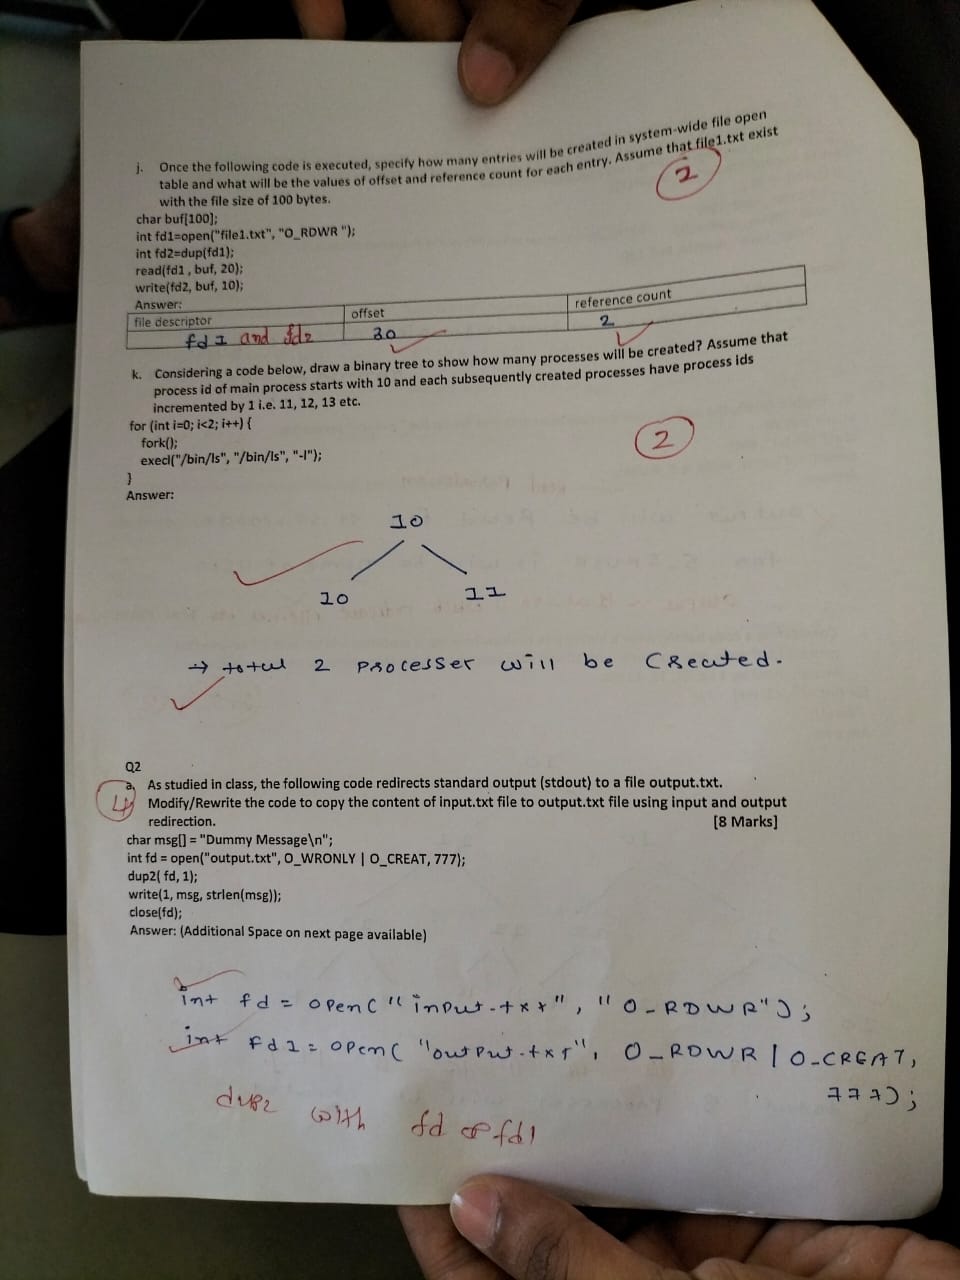 j. Once the following code is executed, specify how many entries will be created in system-wide file open
table and what will be the values of offset and reference count for each entry. Assume that file1.txt exist
with the file size of 100 bytes.
2
char buf[100];
int fd1=open("file1.txt", "O_RDWR ");
int fd2=dup(fd1);
read(fd1 , buf, 20);
write(fd2, buf, 10);
Answer:
file descriptor offset reference count
fd1 and fd2 30 2
k. Considering a code below, draw a binary tree to show how many processes will be created? Assume that
process id of main process starts with 10 and each subsequently created processes have process ids
incremented by 1 i.e. 11, 12, 13 etc.
for (int i=0; i<2; i++) {
fork();
execl("/bin/ls", "/bin/ls", "-l");
2
}
Answer:
10
10 11
→ total 2 processer will be created.
Q2
a. As studied in class, the following code redirects standard output (stdout) to a file output.txt.
4 Modify/Rewrite the code to copy the content of input.txt file to output.txt file using input and output
redirection. [8 Marks]
char msg[] = "Dummy Message\n";
int fd = open("output.txt", O_WRONLY | O_CREAT, 777);
dup2( fd, 1);
write(1, msg, strlen(msg));
close(fd);
Answer: (Additional Space on next page available)
int fd = open("input.txt", "O_RDWR");
int fd1 = open("output.txt", O_RDWR | O_CREAT,
777);
dup2 with fd fd1